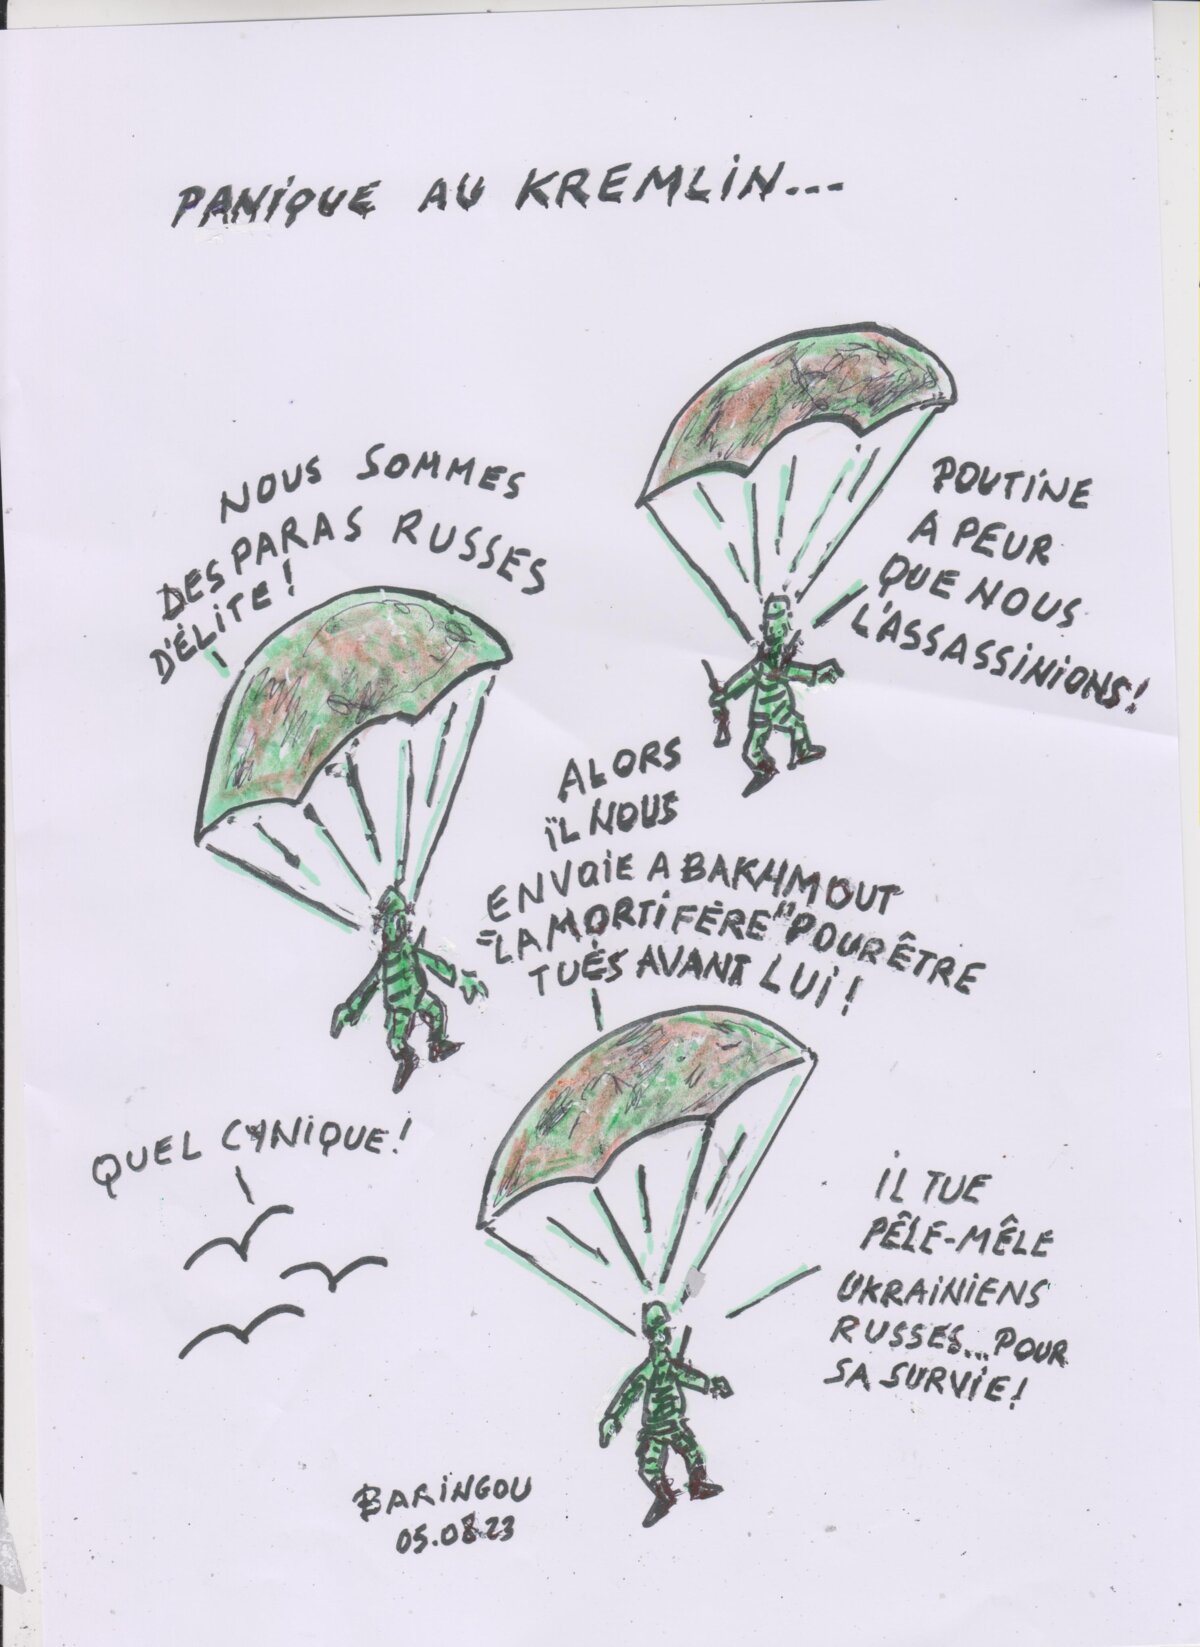 PANIQUE AU KREMLIN...
NOUS SOMMES
DES PARAS RUSSES
D'ÉLITE!
POUTINE
A PEUR
QUE NOUS
L'ASSASSINIONS!
ALORS
IL NOUS
ENVOIE A BAKHMOUT
"LA MORTIFÈRE" POUR ÊTRE
TUÉS AVANT LUI!
QUEL CYNIQUE!
IL TUE
PÊLE-MÊLE
UKRAINIENS
RUSSES... POUR
SA SURVIE!
BARINGOU
05.08.23